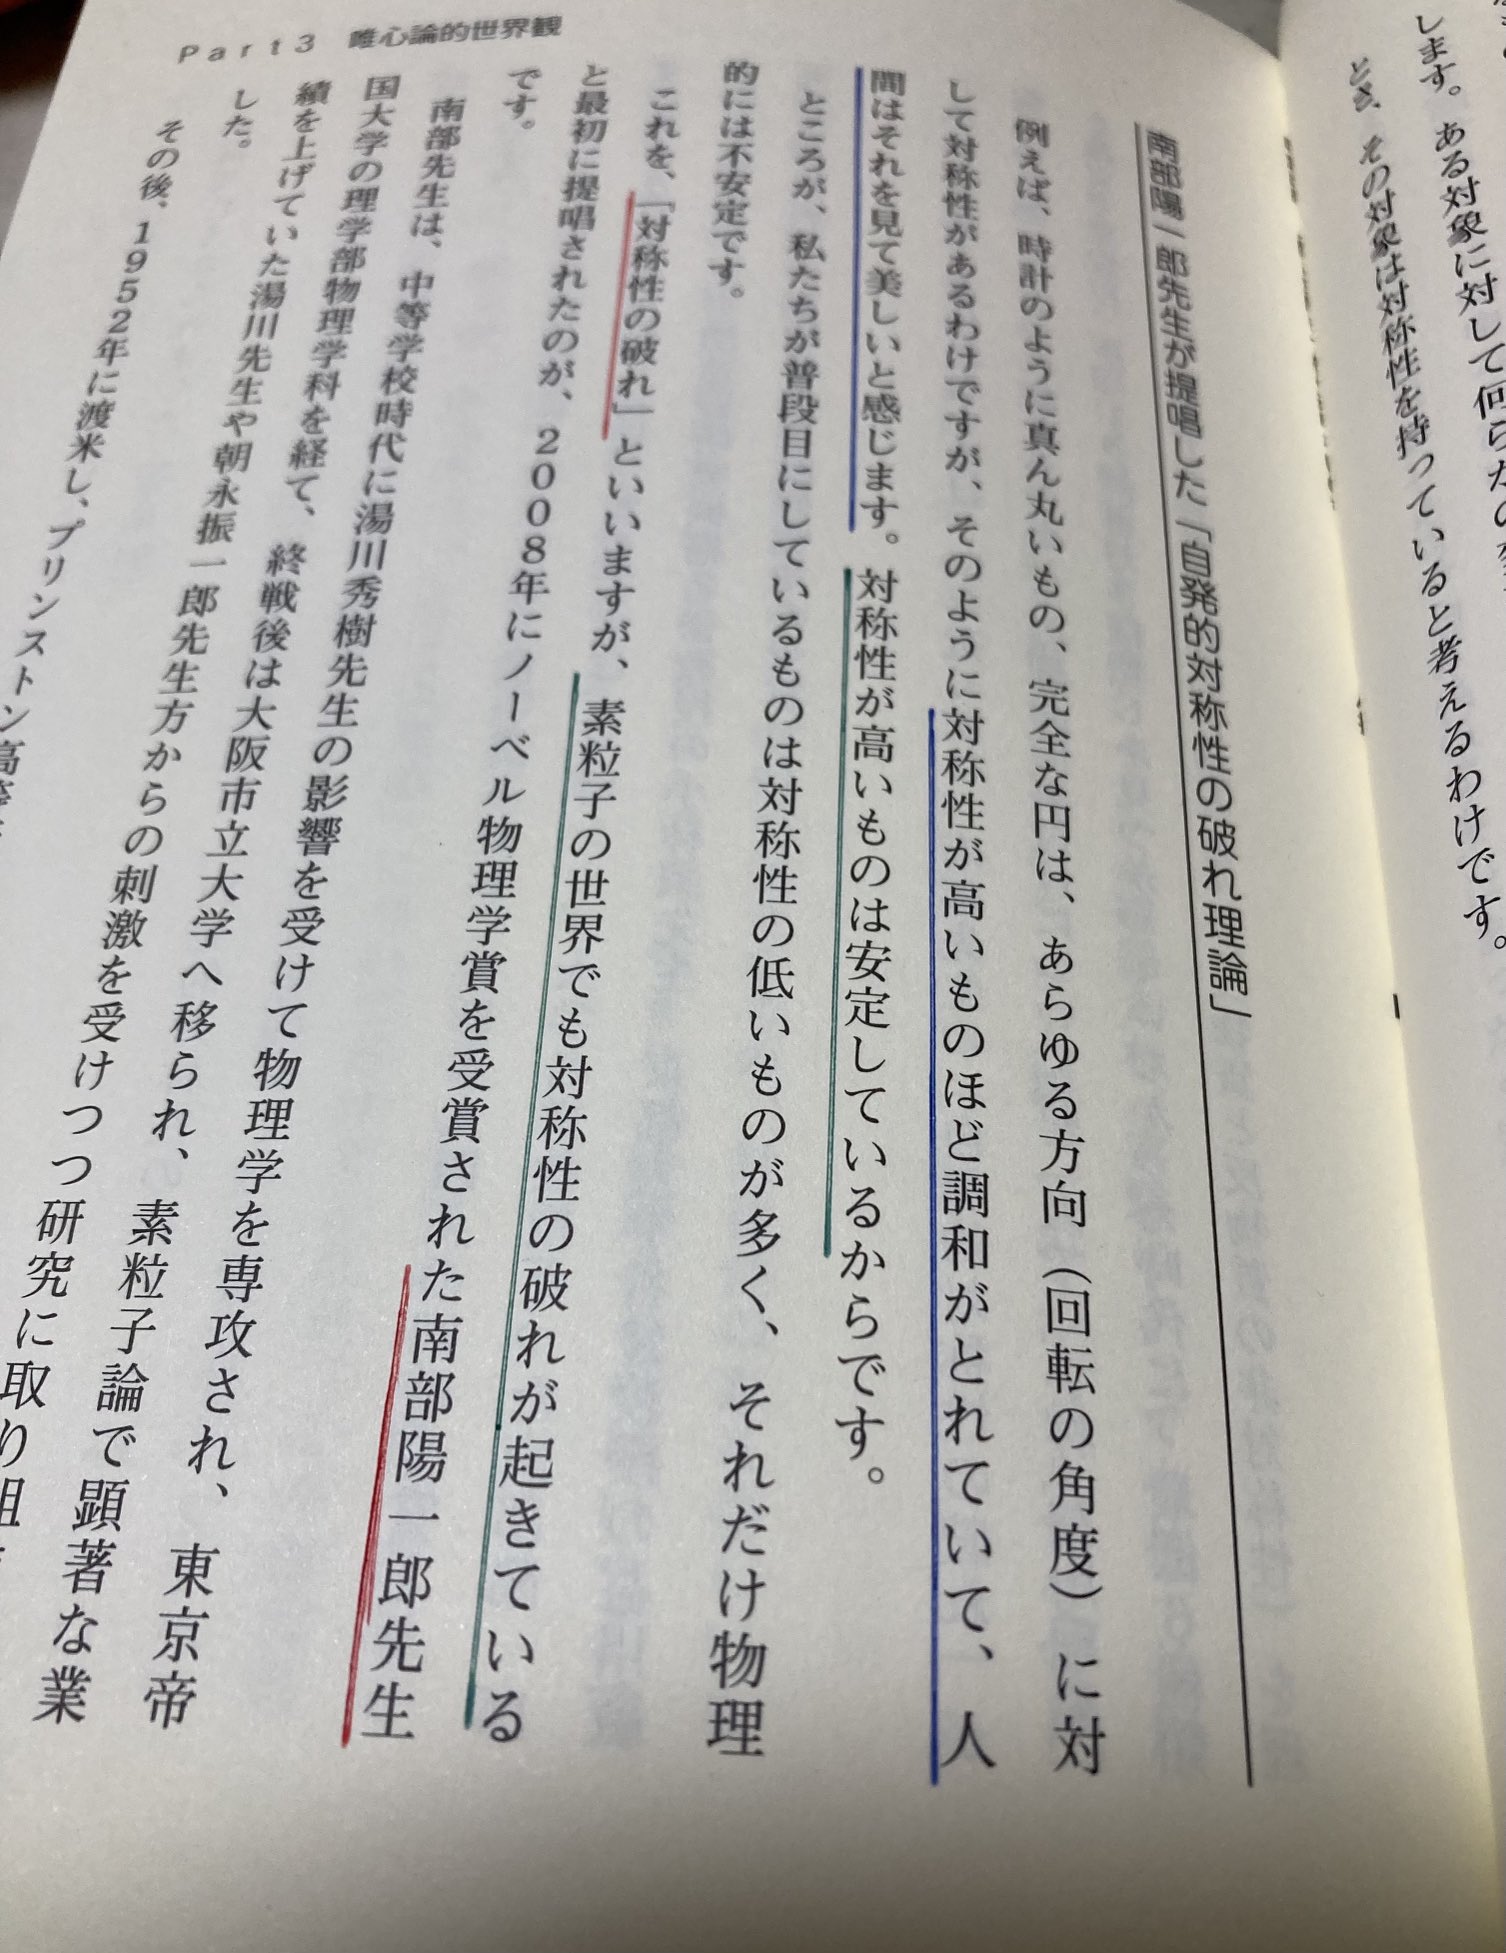 します。ある対象に対して何らかの
とき、その対象は対称性を持っていると考えるわけです。
Part3 唯心論的世界観
南部陽一郎先生が提唱した「自発的対称性の破れ理論」
例えば、時計のように真ん丸いもの、完全な円は、あらゆる方向（回転の角度）に対
して対称性があるわけですが、そのように対称性が高いものほど調和がとれていて、人
間はそれを見て美しいと感じます。対称性が高いものは安定しているからです。
ところが、私たちが普段目にしているものは対称性の低いものが多く、それだけ物理
的には不安定です。
これを、「対称性の破れ」といいますが、素粒子の世界でも対称性の破れが起きている
と最初に提唱されたのが、2008年にノーベル物理学賞を受賞された南部陽一郎先生
です。
南部先生は、中等学校時代に湯川秀樹先生の影響を受けて物理学を専攻され、東京帝
国大学の理学部物理学科を経て、終戦後は大阪市立大学へ移られ、素粒子論で顕著な業
績を上げていた湯川先生や朝永振一郎先生方からの刺激を受けつつ研究に取り組
した。
その後、1952年に渡米し、プリンストン高